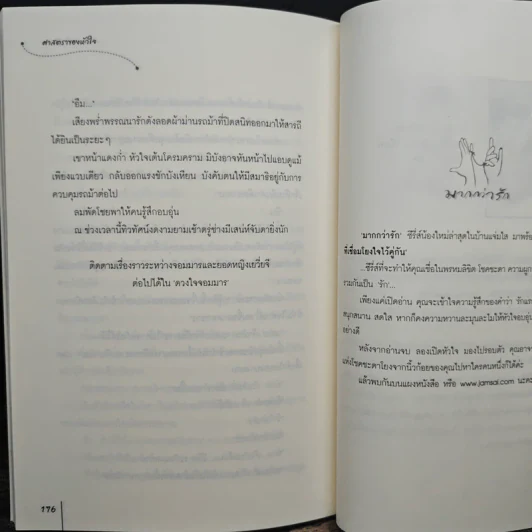 ศาสตราของหัวใจ
'อืม...'
เสียงพร่ำพรรณนารักดังลอดผ้าม่านรถม้าที่ปิดสนิทออกมาให้สารถี
ได้ยินเป็นระยะๆ
เขาหน้าแดงก่ำ หัวใจเต้นโครมคราม มิบังอาจหันหน้าไปแอบดูแม้
เพียงแวบเดียว กลับออกแรงชักบังเหียน บังคับตนให้มีสมาธิอยู่กับการ
ควบคุมรถม้าต่อไป
ลมพัดโชยพาให้คนรู้สึกอบอุ่น
ณ ช่วงเวลานี้ทิวทัศน์งดงามยามเช้าตรู่ช่างมีเสน่ห์จับตายิ่งนัก
ติดตามเรื่องราวระหว่างจอมมารและยอดหญิงเยวี่ยจี
ต่อไปได้ใน 'ดวงใจจอมมาร'
176
มากกว่ารัก
'มากกว่ารัก' ซีรี่ส์น้องใหม่ล่าสุดในบ้านแจ่มใส มาพร้อ
ที่เชื่อมโยงใจไว้คู่กัน'
...ซีรี่ส์ที่จะทำให้คุณเชื่อในพรหมลิขิต โชคชะตา ความผูก
รวมกันเป็น 'รัก'...
เพียงแค่เปิดอ่าน คุณจะเข้าใจความรู้สึกของคำว่า รักแท
สนุกสนาน สดใส หากก็คงความหวานละมุนละไมให้หัวใจอบอุ่น
อย่างดี
หลังจากอ่านจบ ลองเปิดหัวใจ มองไปรอบตัว คุณอาจ
แห่งโชคชะตาโยงจากนิ้วก้อยของคุณไปหาใครคนหนึ่งก็ได้ค่ะ
แล้วพบกันบนแผงหนังสือ หรือ www.jamsai.com นะคะ